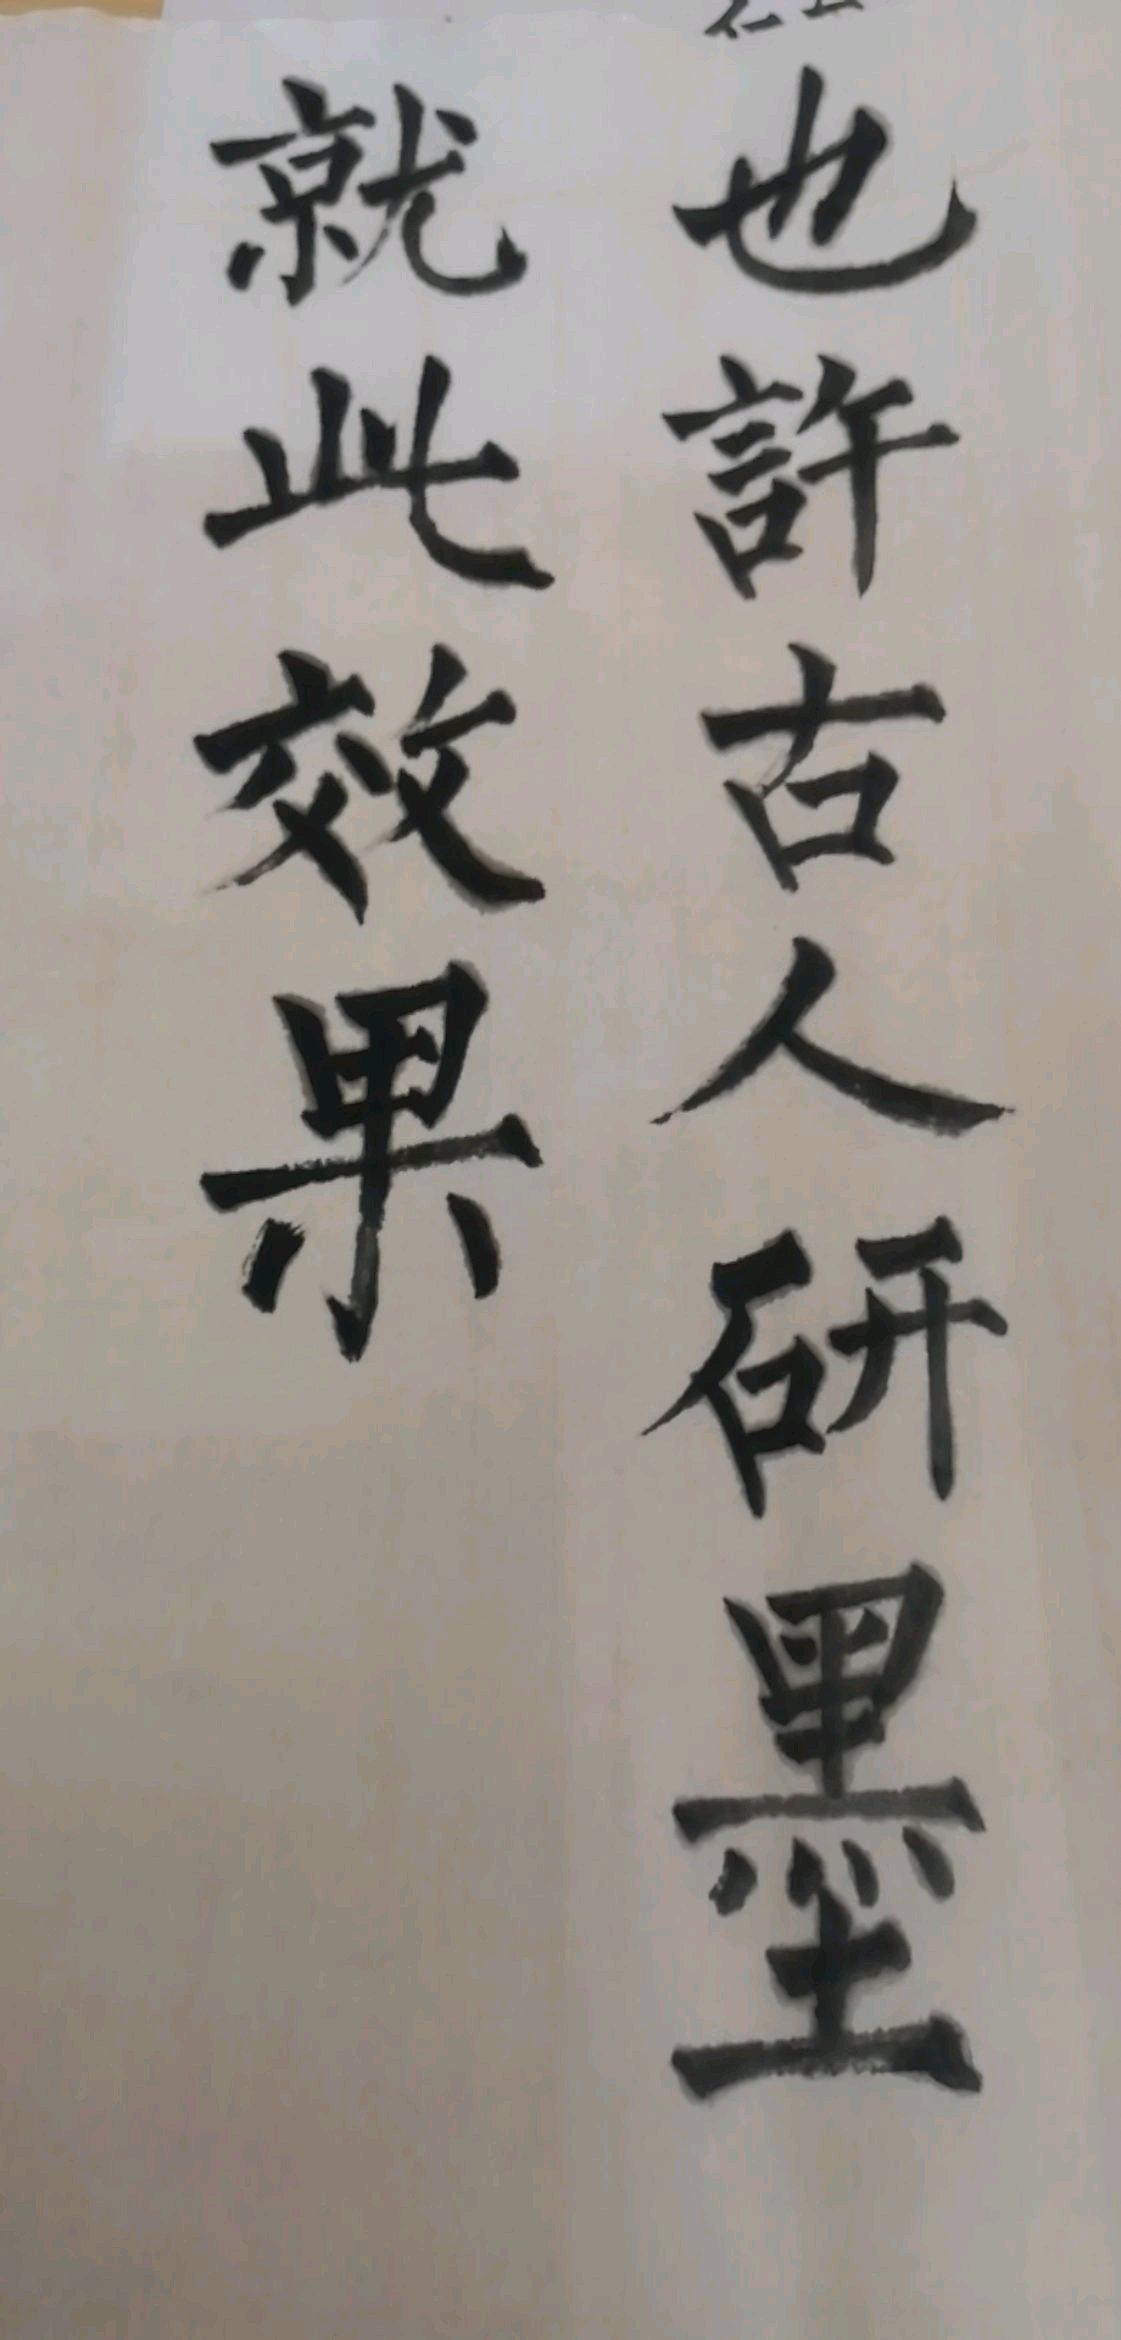 也許古人研墨
就此效果